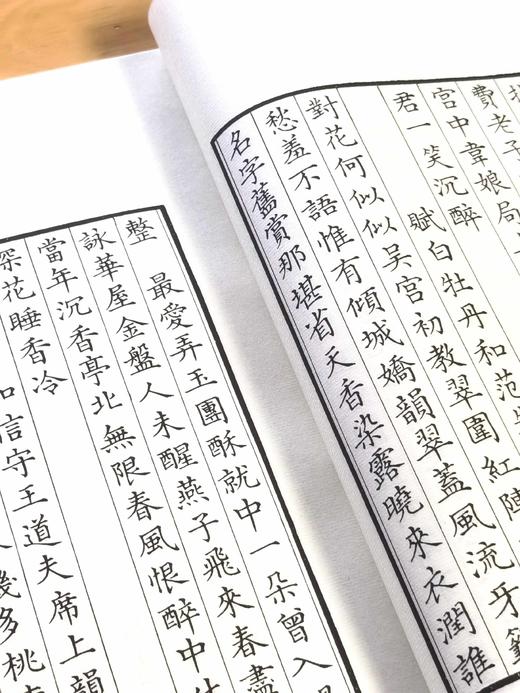 費老子
宮中韋娘局
君一笑沉醉
賦白牡丹和范
對花何似似吳宮初教翠圍紅陣
愁羞不語惟有傾城嬌韻翠蓋風流牙籤
名字舊賞那堪省天香染露曉來衣潤誰
整　最愛弄玉團酥就中一朵曾入
詠華屋金盤人未醒燕子飛來春盡
當年沉香亭北無限春風恨醉中
深花睡香冷
和信守王道夫席上韻
幾多桃